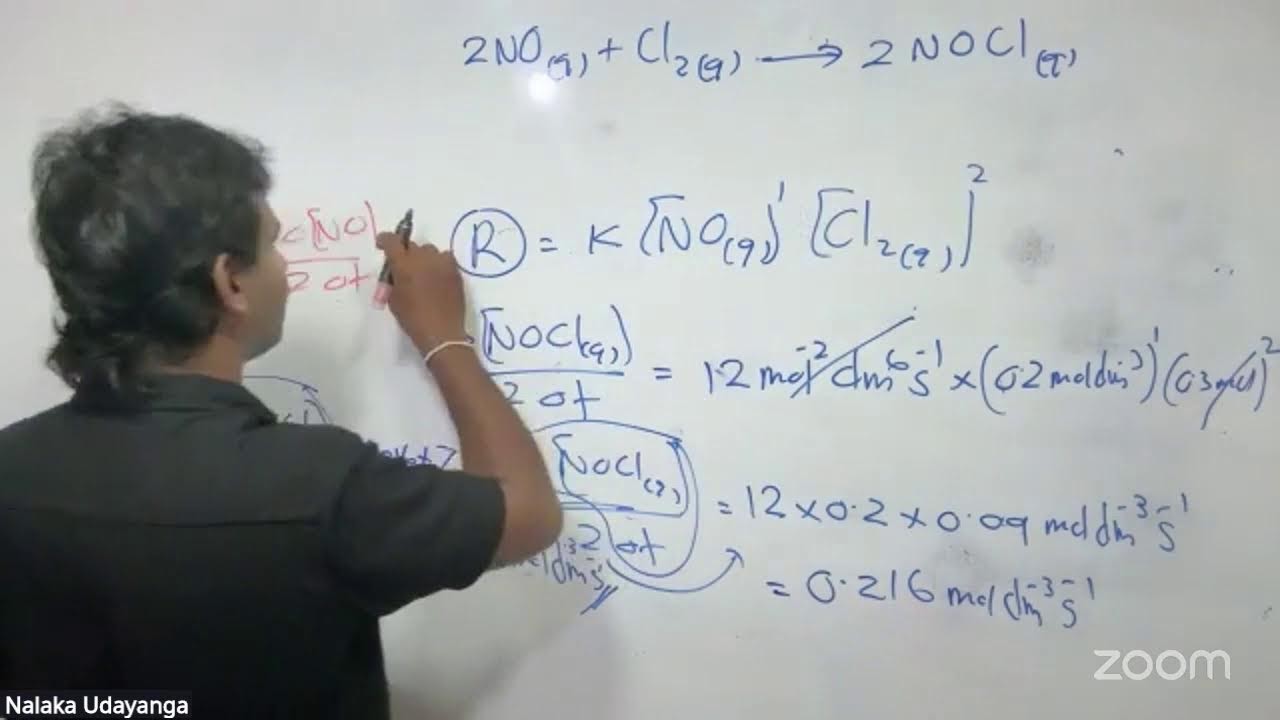 2NO(g) + Cl2(g) → 2NOCl(g)
[NO]
2 Δt
R = K [NO(g)]^1 [Cl2(g)]^2
[NOCl(g)]
2 Δt
= 12 mol^-2 dm^6 s^-1 × (0.2 mol dm^-3)^1 (0.3 )^2
[NOCl(g)]
2 Δt
= 12 × 0.2 × 0.09 mol dm^-3 s^-1
dm^-3 s^-1
= 0.216 mol dm^-3 s^-1
zoom
Nalaka Udayanga